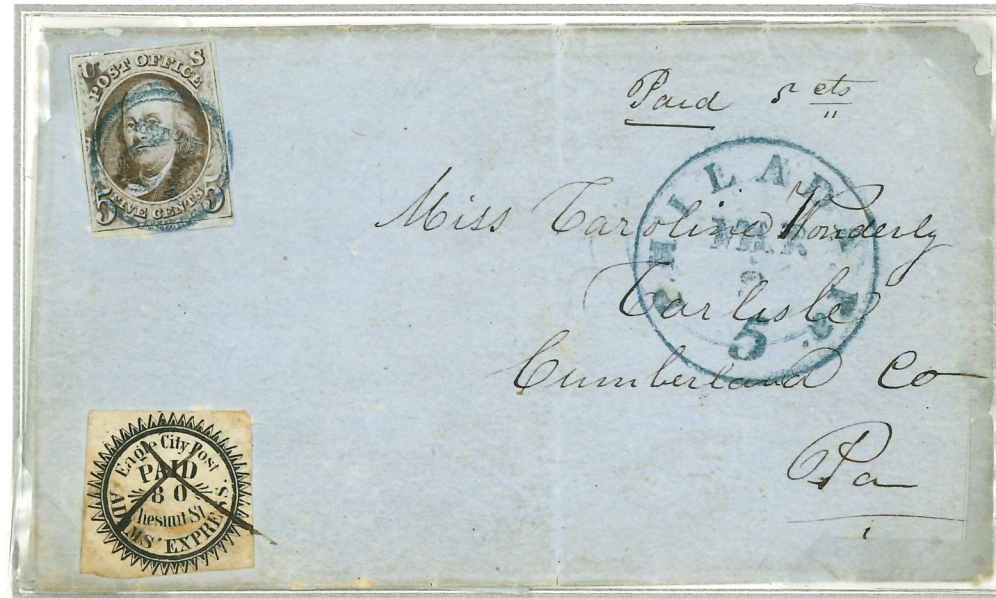 U S
POST OFFICE
5 FIVE CENTS 5
Paid 5 cts
PHILADA Pa.
MAR
5
Miss Caroline Wonderly
Carlisle
Cumberland Co
Pa
Eagle City Post
PAID
80
Chesnut St.
ADAMS' EXPRESS.